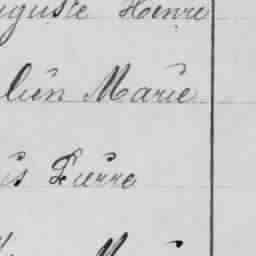 uguste Henri
lien Marie
is Pierre